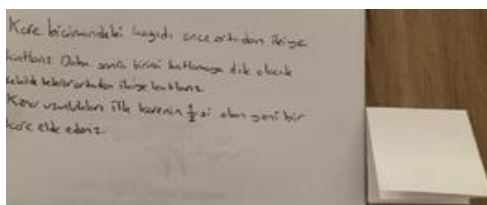 Kare biçimindeki kağıdı önce ortadan ikiye
katlarız. Daha sonra birinci katlamaya dik olacak
şekilde tekrar ortadan ikiye katlarız.
Kenar uzunlukları ilk karenin 1/2 si olan yeni bir
kare elde ederiz.